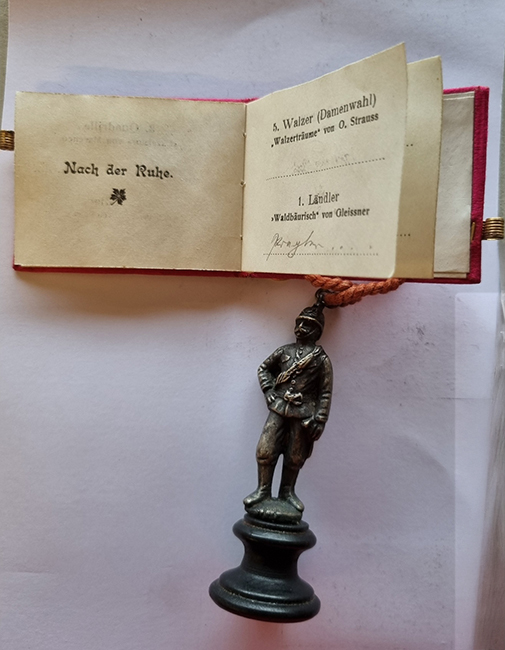 Nach der Ruhe.
5. Walzer (Damenwahl)
„Walzerträume“ von O. Strauss
1. Ländler
„Waldbäurisch“ von Gleissner